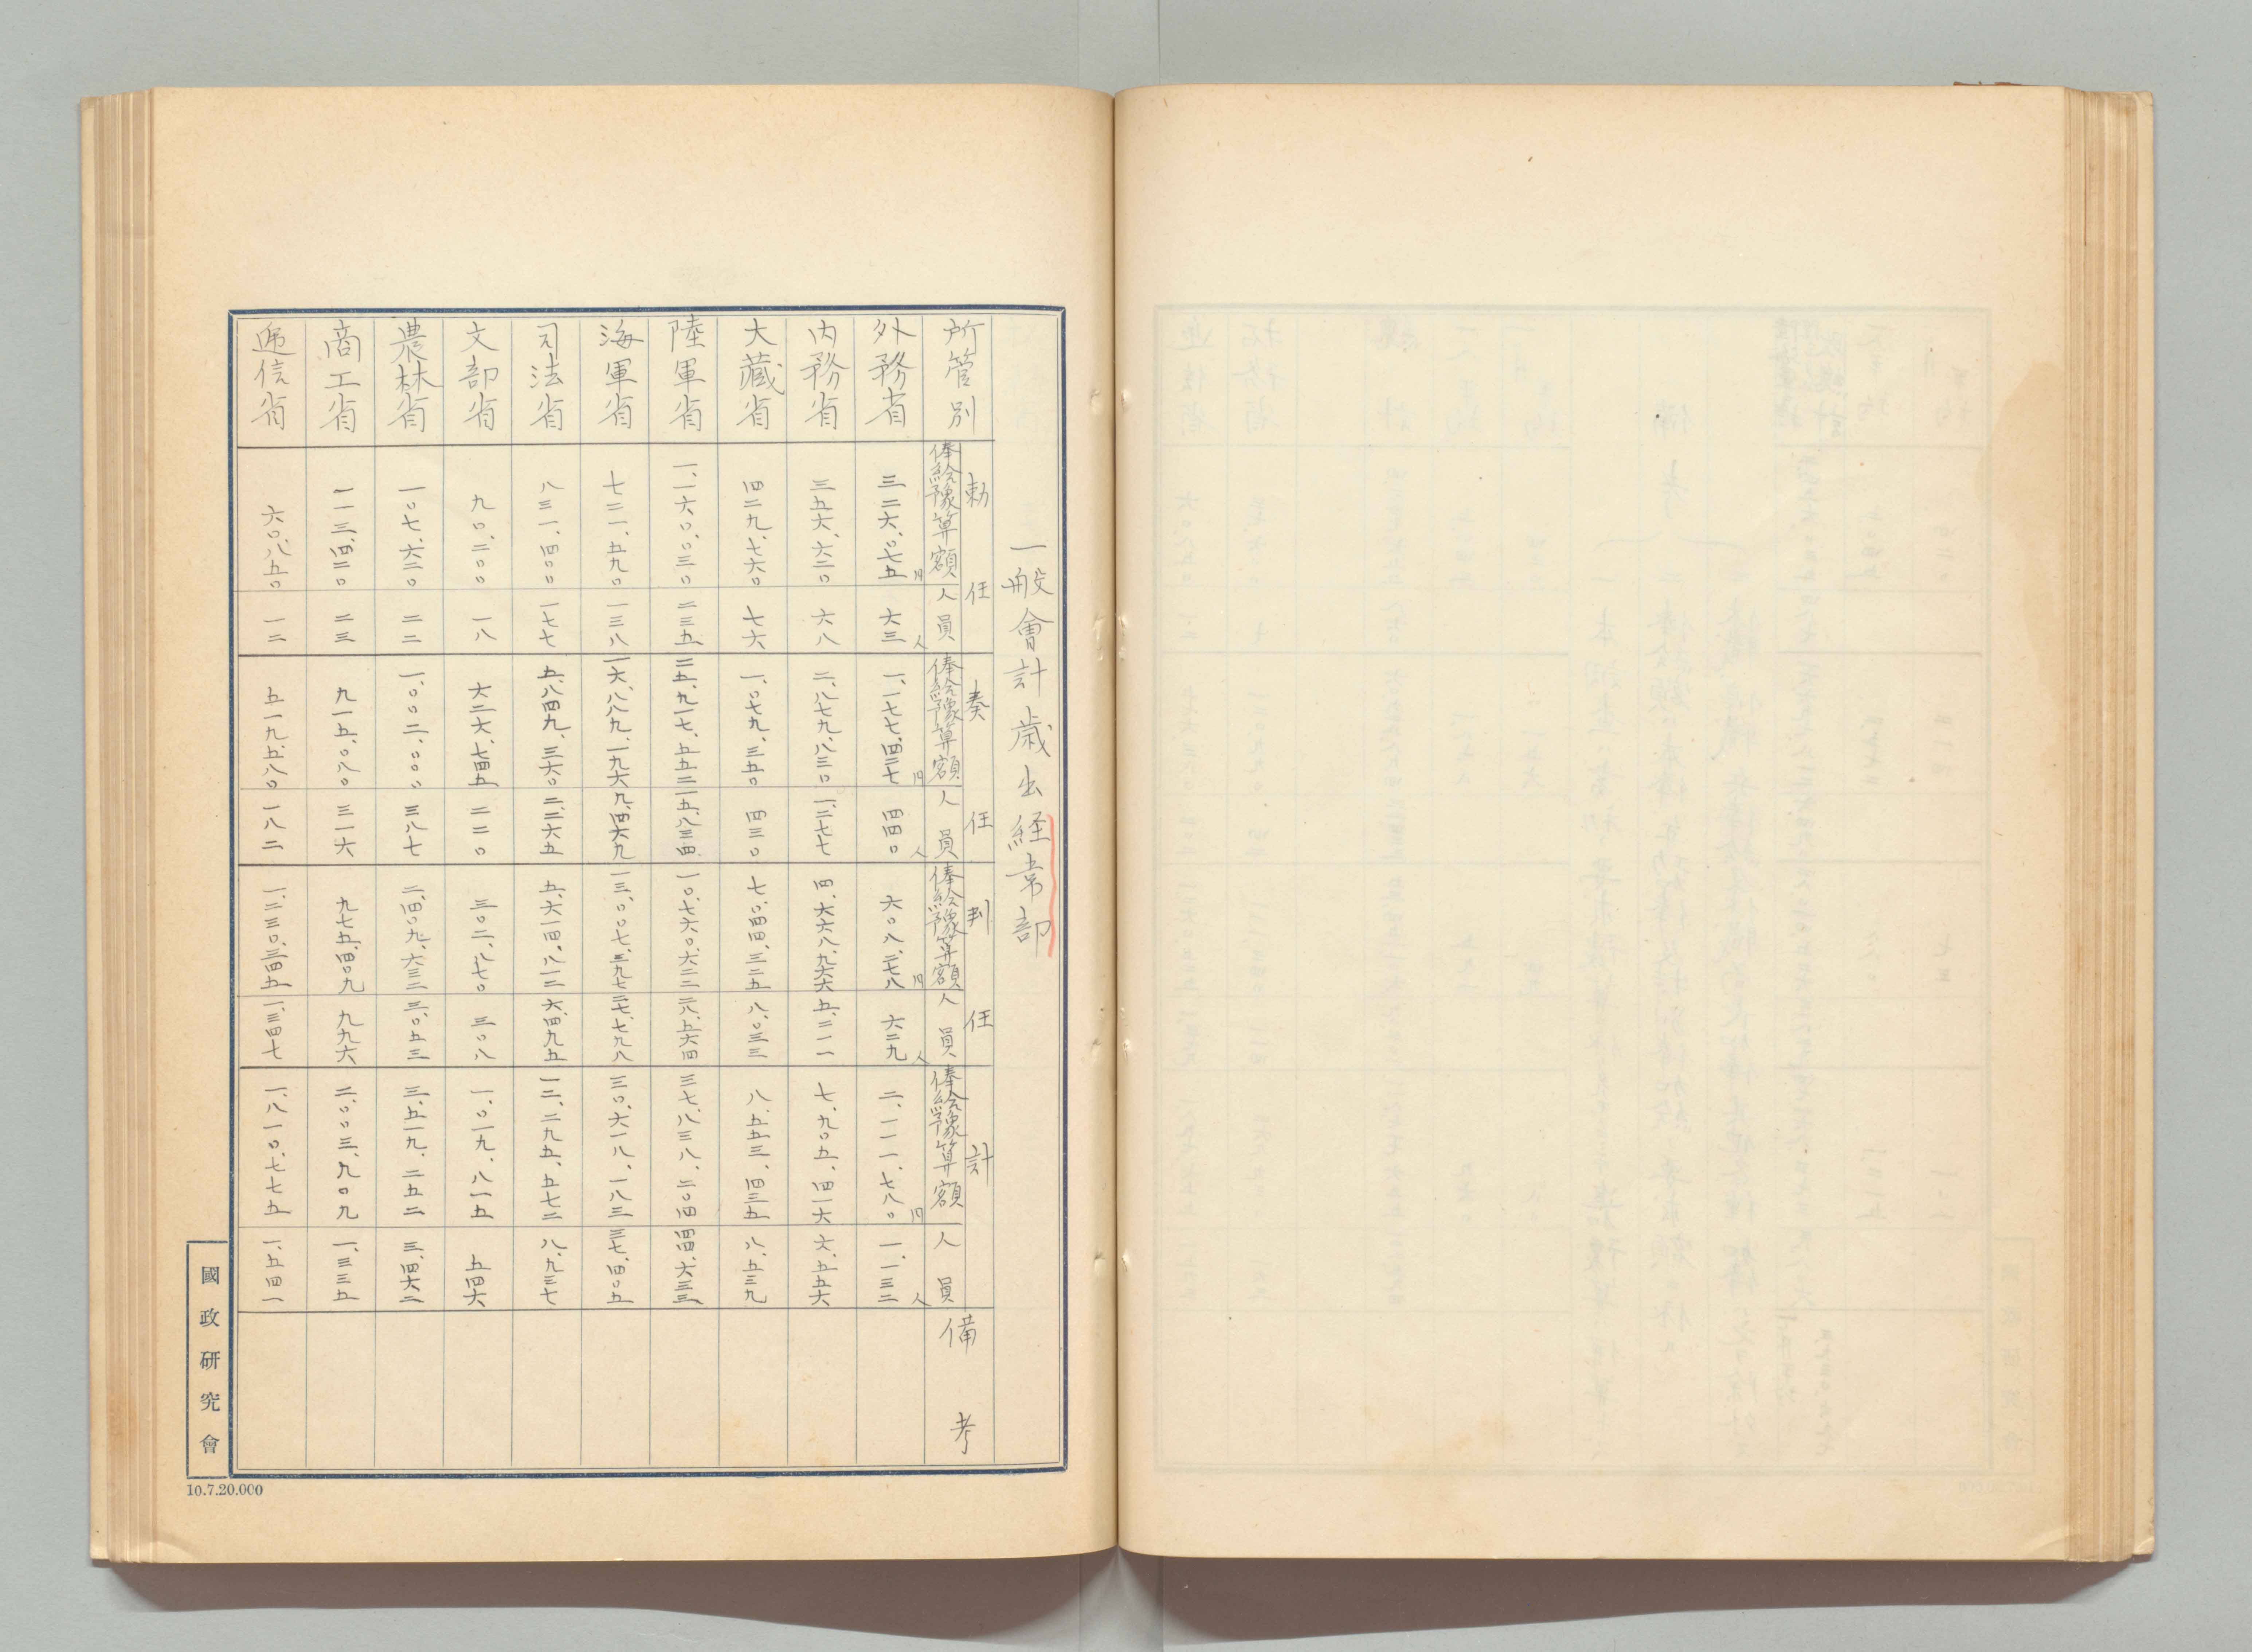 一般會計歳出経常部
所管別 勅任 奏任 判任 計 備考
俸給豫算額 人員 俸給豫算額 人員 俸給豫算額 人員 俸給豫算額 人員
外務省 三二六、〇七五円 六三人 一、一七七、四二七円 四四〇人 六〇八、二七八円 六二九人 二、一一一、七八〇円 一、一三二人
内務省 三五六、六二〇 六八 二、八七九、八三〇 一、二七七 四、六六八、九六六 五、二一一 七、九〇五、四一六 六、五五六
大藏省 四二九、七六〇 七六 一、〇七九、三五〇 四三〇 七、〇四四、三二五 八、〇三三 八、五五三、四三五 八、五三九
陸軍省 一、一六〇、〇三〇 二三五 二五、九一七、五五二 一五、八三四 一〇、七六〇、六二二 二八、五六四 三七、八三八、二〇四 四四、六三三
海軍省 七二一、五九〇 一三八 一六、八八九、一九六 九、四六九 一三、〇〇七、三九七 二七、七九八 三〇、六一八、一八三 三七、四〇五
司法省 八三一、四〇〇 一七七 五、八四九、三六〇 二、二六五 五、六一四、八一二 六、四九五 一二、二九五、五七二 八、九三七
文部省 九〇、二〇〇 一八 六二六、七四五 二二〇 三〇二、八七〇 三〇八 一、〇一九、八一五 五四六
農林省 一〇七、六二〇 二二 一、〇〇二、〇〇〇 三八七 二、四〇九、六三二 三、〇五三 三、五一九、二五二 三、四六二
商工省 一一三、四二〇 二三 九一五、〇八〇 三一六 九七五、四〇九 九九六 二、〇〇三、九〇九 一、三三五
逓信省 六〇、八五〇 一二 五一九、五八〇 一八二 一、二三〇、三四五 一、三四七 一、八一〇、七七五 一、五四一
國政研究會
10.7.20.000